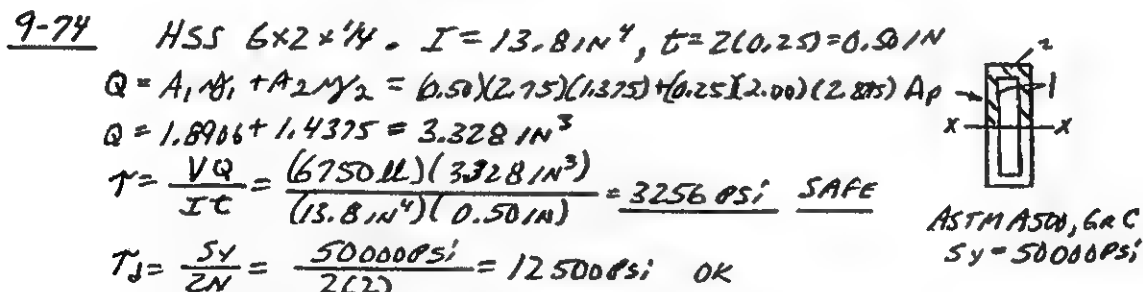 9-74 HSS 6x2x1/4. I = 13.8 IN⁴, t = 2(0.25) = 0.50 IN
Q = A₁y₁ + A₂y₂ = (0.50)(2.75)(1.375) + (0.25)(2.00)(2.875) Ap
Q = 1.8906 + 1.4375 = 3.328 IN³
τ = VQ/It = (6750 lb)(3.328 IN³)/(13.8 IN⁴)(0.50 IN) = 3256 psi SAFE
τd = Sy/2N = 50000 psi/2(2) = 12500 psi OK
2
1
X X
ASTM A500, GR C
Sy = 50000 psi